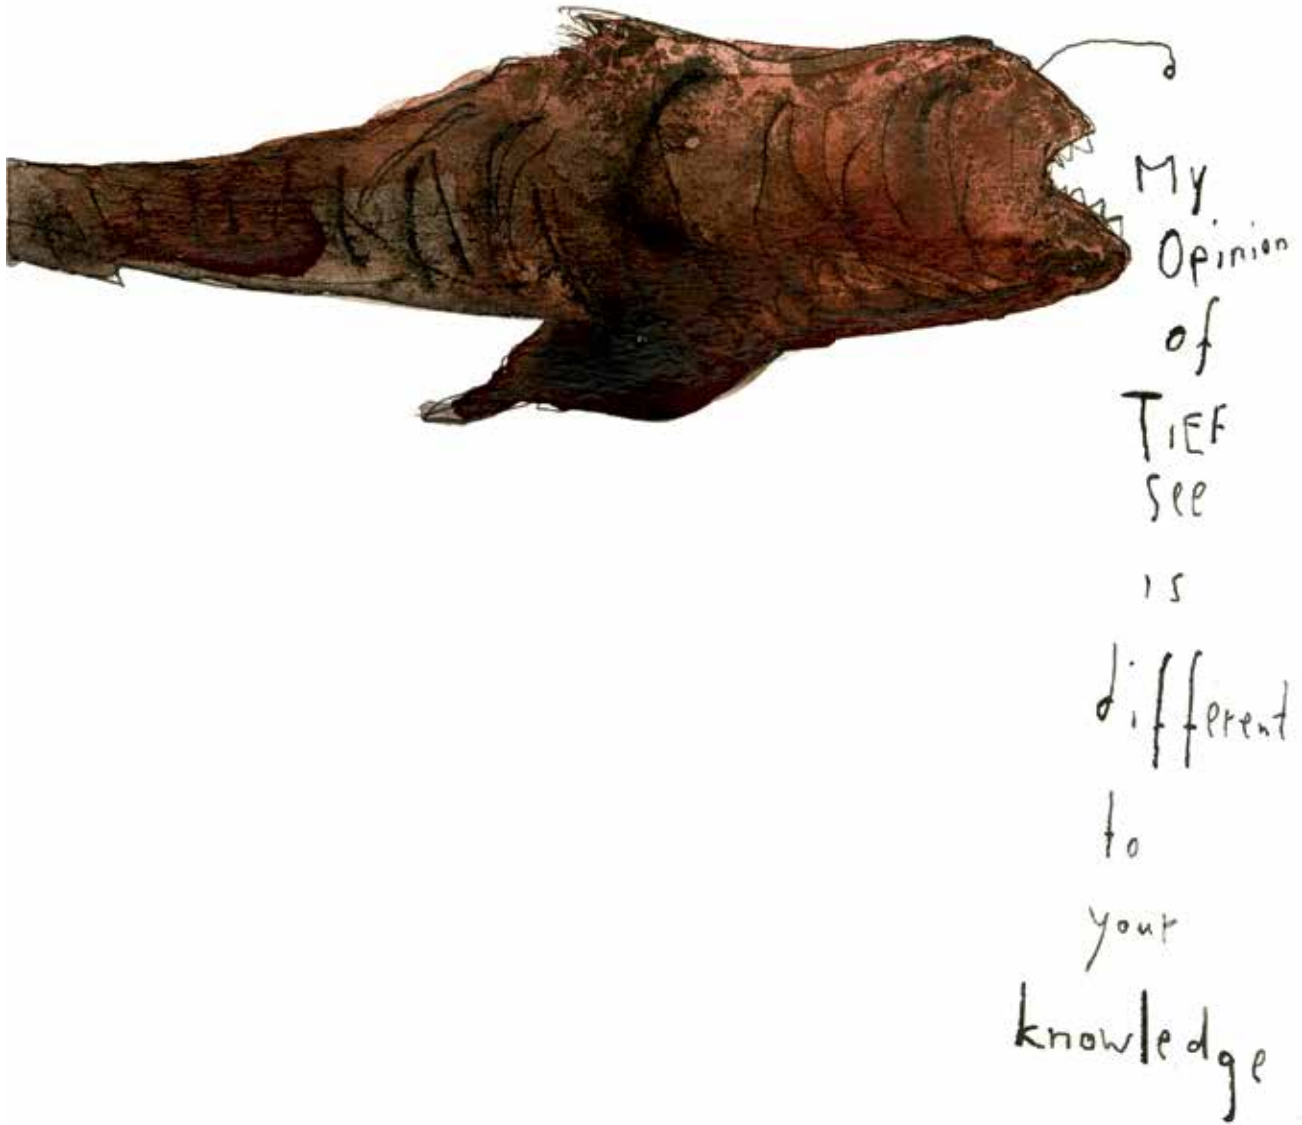 My
Opinion
of
TIEF
see
is
different
to
your
knowledge